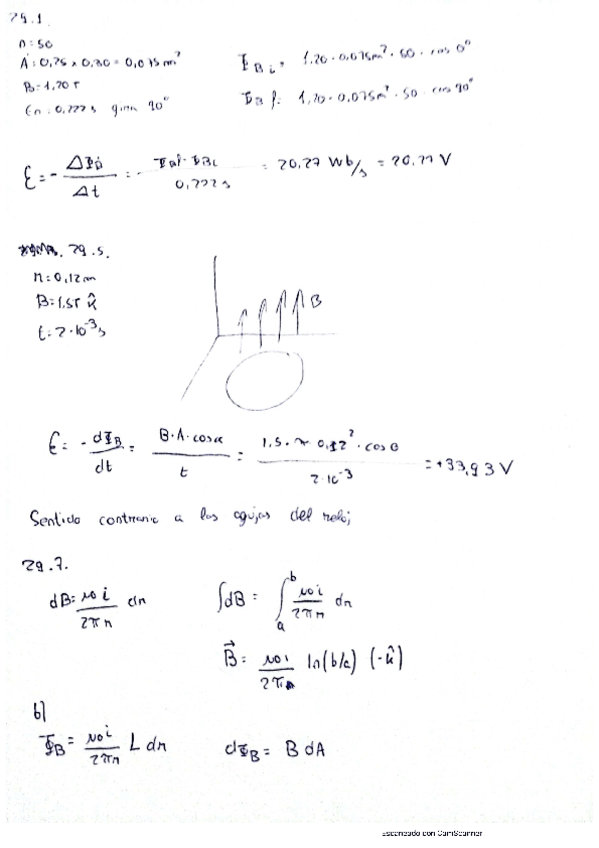 29.1
n=50
A=0,25 x 0,30=0,075 m²
B=1,20 T
En 0,222 s gira 90°
Φ_Bi = 1.20 · 0,075m² · 50 · cos 0°
Φ_Bf = 1,20 · 0,075m² · 50 · cos 90°
ε = - ΔΦ_B / Δt = - (Φ_Bf - Φ_Bi) / 0,222 s = 20,27 Wb/s = 20.27 V
29.5.
r=0,12m
B=1.5T k̂
t=2·10⁻³s
B
ε = - dΦ_B / dt = B·A·cosα / t = 1.5·π 0,12²·cos 0 / 2·10⁻³ = +33,93 V
Sentido contrario a las agujas del reloj
29.7.
dB = μ0 i / 2πr dr
∫dB = ∫_a^b μ0 i / 2πr dr
B⃗ = μ0 i / 2π ln(b/a) (-k̂)
b)
Φ_B = μ0 i / 2πr L dr
dΦ_B = B dA
Escaneado con CamScanner